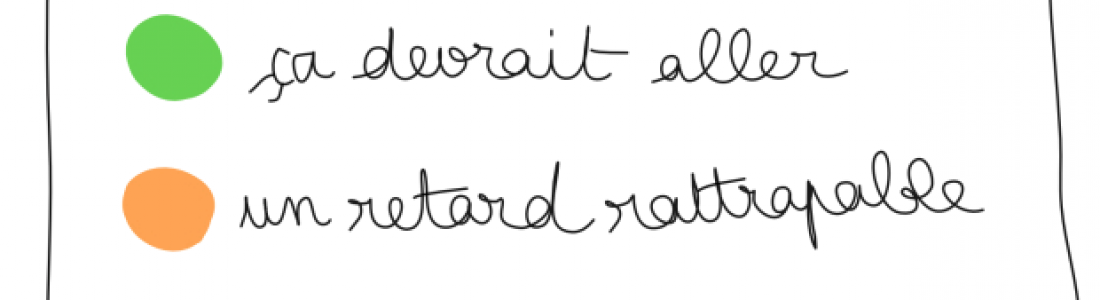 ça devrait aller
un retard rattrapable